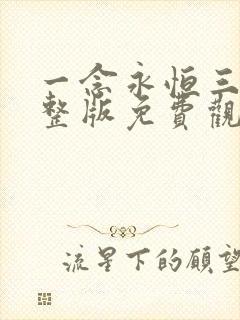 一念永恒三
整版免費觀
流星下的願望